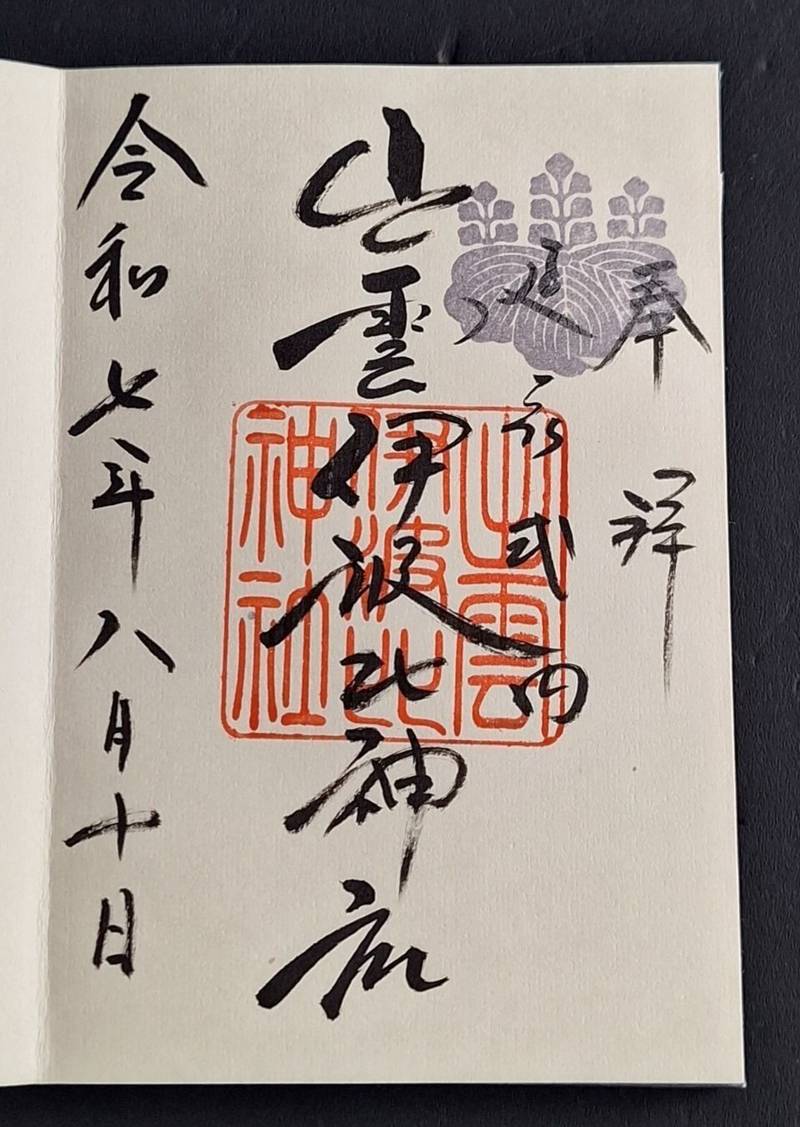 奉拝
延喜式内
出雲伊波比神社
令和七年八月十日
出雲
伊波比
神社